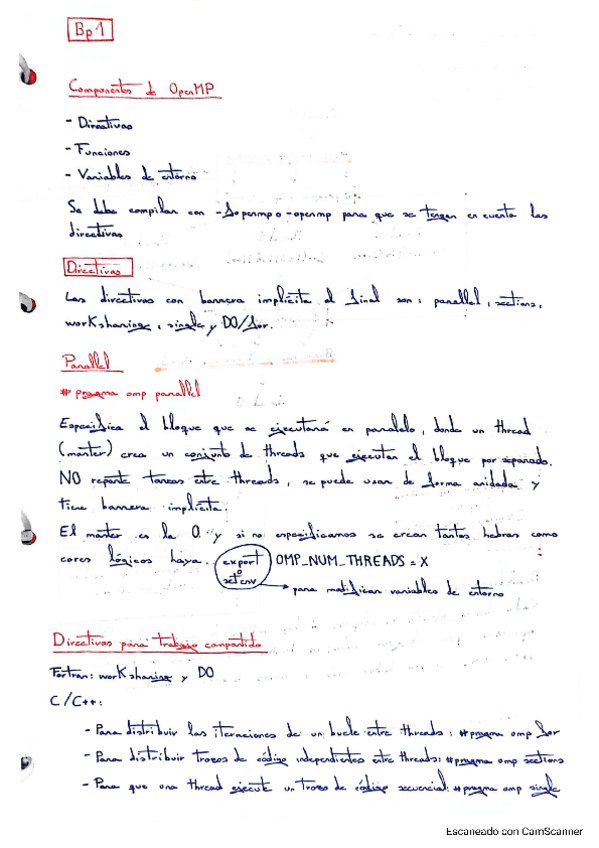 Bp1
Componentes de OpenMP
- Directivas
- Funciones
- Variables de entorno
Se debe compilar con -fopenmp o -openmp para que se tengan en cuenta las
directivas
Directivas
Las directivas con barrera implícita al final son: parallel, sections,
worksharing, single y DO/for.
Parallel
# pragma omp parallel
Especifica el bloque que se ejecutará en paralelo, donde un thread
(master) crea un conjunto de threads que ejecutan el bloque por separado.
NO reparte tareas entre threads, se puede usar de forma anidada y
tiene barrera implícita.
El master es la 0 y si no especificamos se crean tantas hebras como
cores lógicos haya. export o setenv OMP_NUM_THREADS = X
para modificar variables de entorno
Directivas para trabajo compartido
Fortran: worksharing y DO
C/C++:
- Para distribuir las iteraciones de un bucle entre threads: #pragma omp for
- Para distribuir trozos de código independientes entre threads: #pragma omp sections
- Para que una thread ejecute un trozo de código secuencial: #pragma omp single
Escaneado con CamScanner